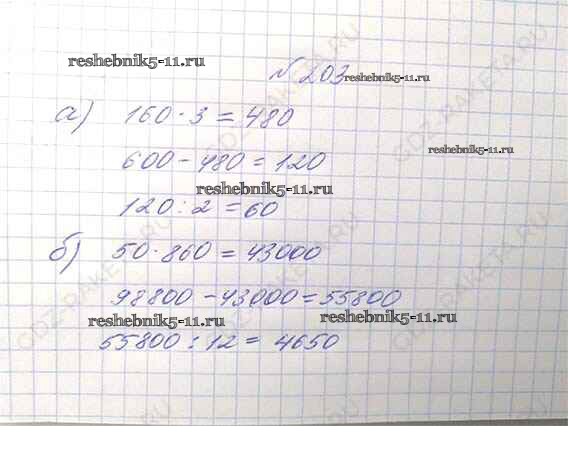 reshebnik5-11.ru
№ 203
reshebnik5-11.ru
а) 160 · 3 = 480
600 - 480 = 120
reshebnik5-11.ru
reshebnik5-11.ru
120 : 2 = 60
б) 50 · 860 = 43000
98800 - 43000 = 55800
reshebnik5-11.ru
reshebnik5-11.ru
55800 : 12 = 4650
GDZ-RAKETA.RU
GDZ-RAKETA.RU
GDZ-RAKETA.RU
GDZ-RAKETA.RU